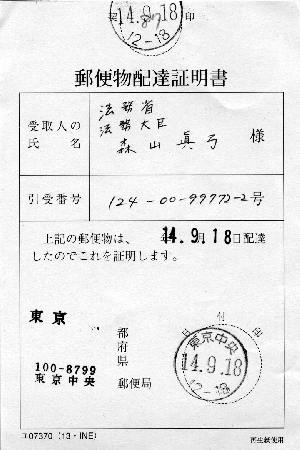 14.9.18
印
12-18
郵便物配達証明書
受取人の氏名
法務省
法務大臣
森山眞弓 様
引受番号 124-00-99772-2号
上記の郵便物は、 14.9月18日配達
したのでこれを証明します。
東京
都
府
県
100-8799
東京中央 郵便局
日付印
東京中央
14.9.18
12-18
〒07370 (13・INE)
再生紙使用